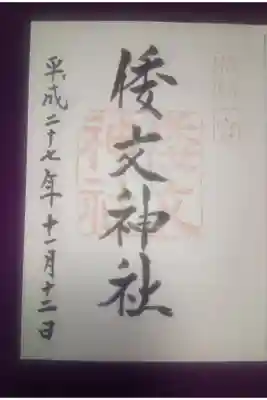 倭文神社
平成二十七年十一月十二日